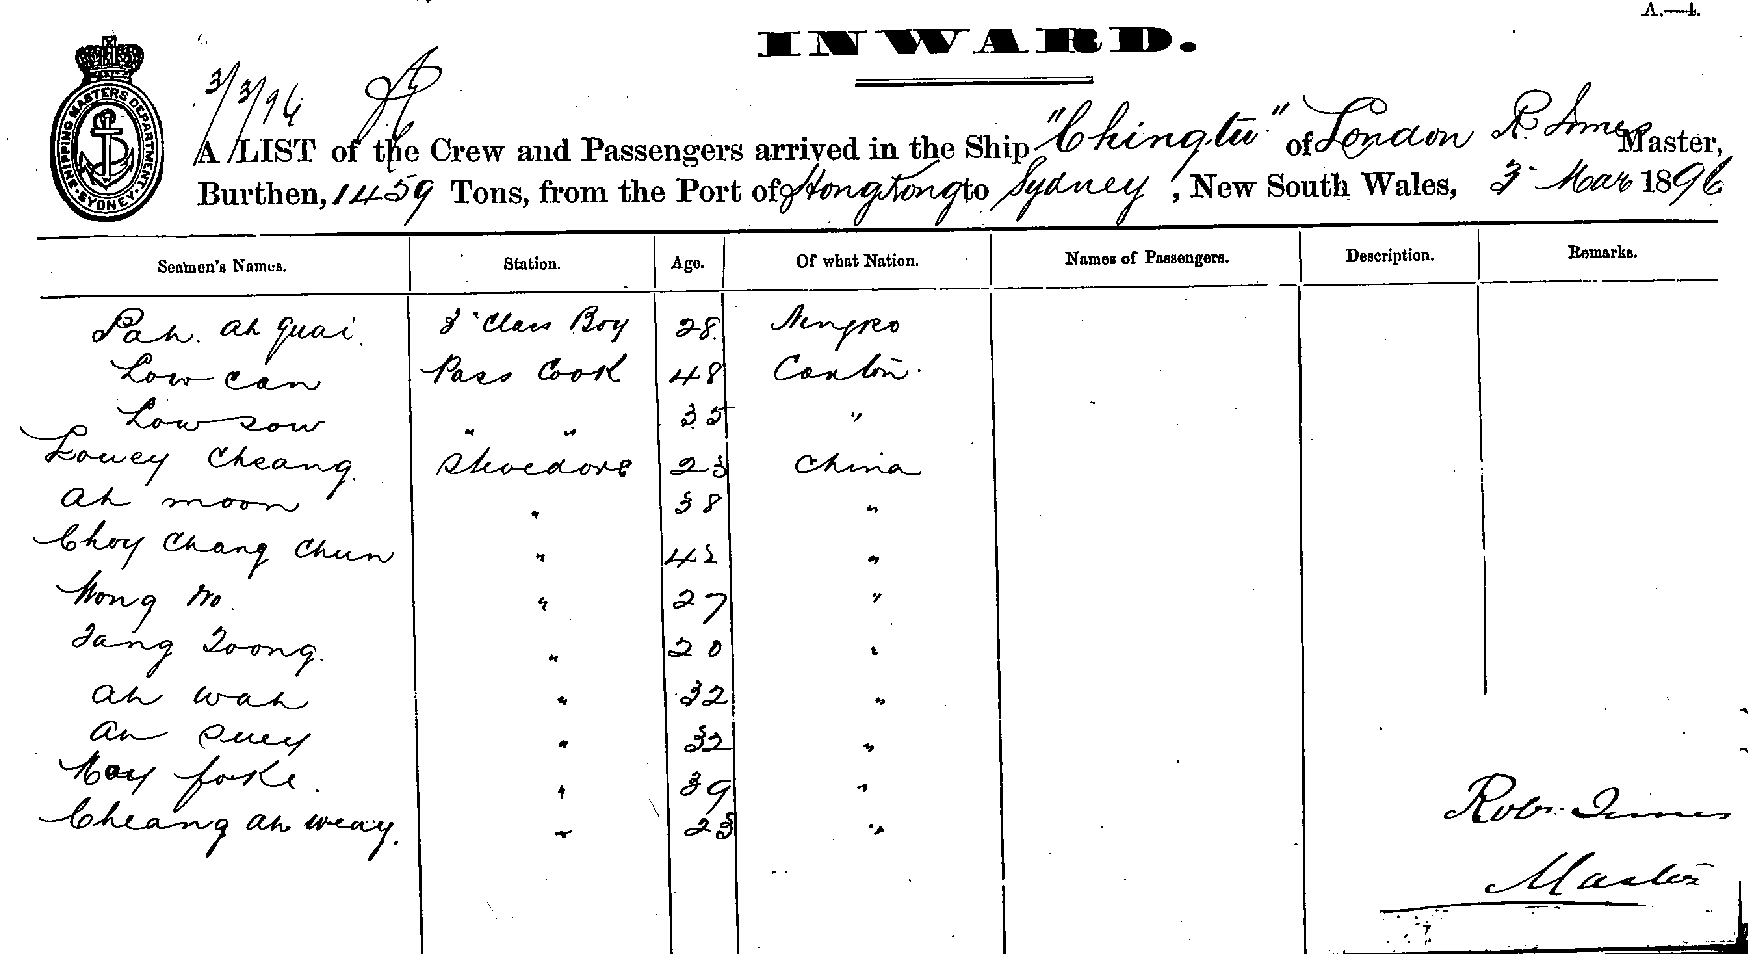 A.—1.
INWARD.
SHIPPING MASTERS DEPARTMENT SYDNEY
3/3/96
A LIST of the Crew and Passengers arrived in the Ship "Chingtu" of London R. Innes Master,
Burthen, 1459 Tons, from the Port of Hong Kong to Sydney, New South Wales, 3 Mar 1896
Seamen's Names. Station. Age. Of what Nation. Names of Passengers. Description. Remarks.
Pah. Ah Quai. 3 Class Boy 28. Ningpo
Low can Pass Cook 48 Canton.
Low sow " " 35 "
Lowey Cheang. Stevedore 23 China
Ah moon " 38 "
Choy Chang Chun " 42 "
Wong Wo. " 27 "
Tang Toong. " 20 "
Ah wah " 32 "
Ah Suey " 32 "
Moy foke. " 39 "
Cheang Ah weay. " 23 "
Robt. Innes
Master